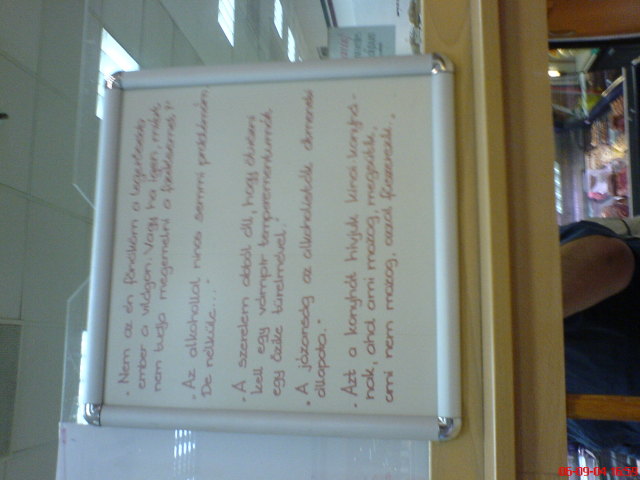 • Nem az én főnököm a legértelmesebb
ember a világon. Vagy ha igen, miért
nem tudja megemelni a fizetésemet?"
• Az alkohollal nincs semmi problémám.
De nélküle...."
• A szerelem abból áll, hogy ötvözni
kell egy vámpír temperamentumát
egy őzike türelmével."
• A józanság az alkoholisták átmeneti
állapota."
• Azt a konyhát hívjuk kínai konyhá-
nak, ahol ami mozog, megsütik,
ami nem mozog, azzal fűszereznek.